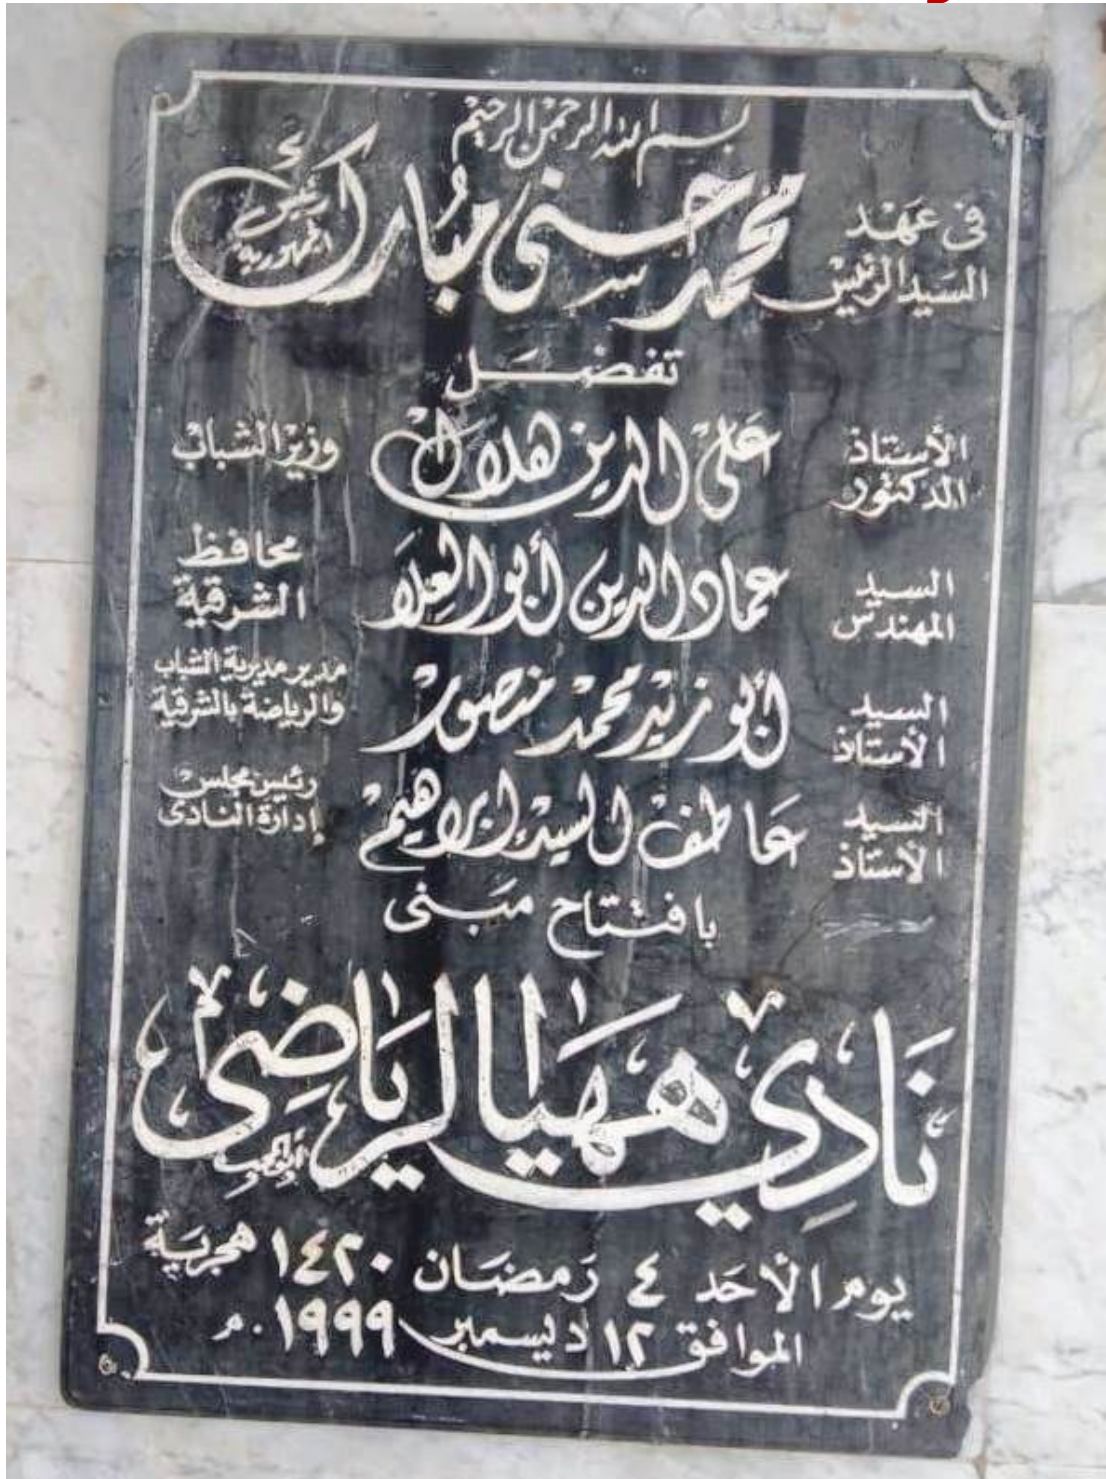 بسم الله الرحمن الرحيم
في عهد السيد الرئيس محمد حسني مبارك رئيس الجمهورية
تفضل
الأستاذ الدكتور على الدين هلال وزير الشباب
السيد المهندس عماد الدين أبو العلا محافظ الشرقية
السيد الأستاذ أبو زيد محمد منصور مدير مديرية الشباب والرياضة بالشرقية
السيد الأستاذ عاطف السيد ابراهيم رئيس مجلس إدارة النادى
بافتتاح مبنى
نادي ههيا الرياضى
يوم الأحد ٤ رمضان ١٤٢٠ هجرية
الموافق ١٢ ديسمبر ١٩٩٩ م